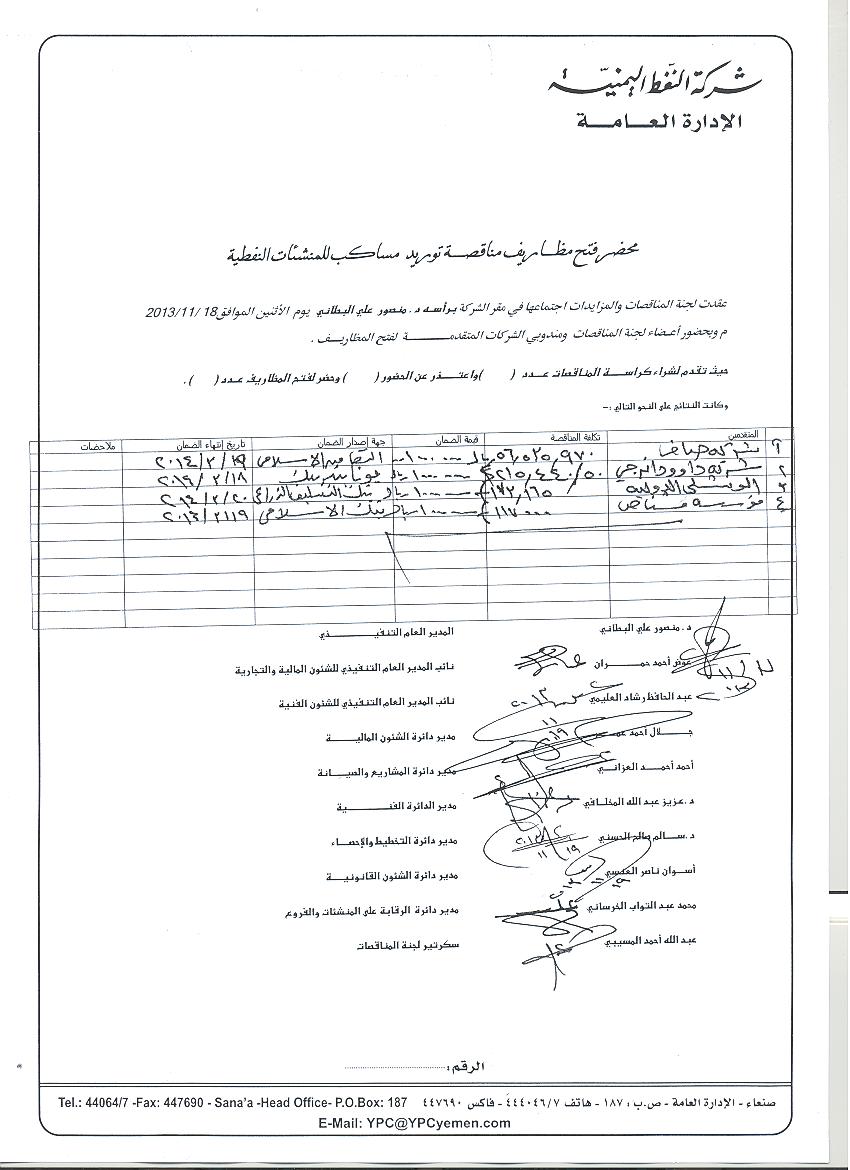 شركة النفط اليمنية
الإدارة العامة
محضر فتح مظاريف مناقصة توريد مساكب للمنشئات النفطية
عقدت لجنة المناقصات والمزايدات اجتماعها في مقر الشركة برأسه د. منصور علي البطاني يوم الأثنين الموافق 18/11/2013
م وبحضور أعضاء لجنة المناقصات ومندوبي الشركات المتقدمة لفتح المظاريف .
حيث تقدم لشراء كراسة المناقصات عدد ( ) واعتذر عن الحضور ( ) وحضر لفتح المظاريف عدد ( ).
وكانت النتائج علي النحو التالي :-
المتقدمين تكلفة المناقصة قمة الضمان جهة إصدار الضمان تاريخ إنتهاء الضمان ملاحضات
١ شركة ٥٦,٥٢٥,٩٧٠ ريال ١٠٠٠٠٠٠ التضامن الاسلامي ٢٠١٤/٢/١٩
٢ شركة ٢١٥,٤٤٠/٥٠ $ ١٠٠٠٠٠٠ ريال يونايتد بنك ٢٠١٤/٢/١٨
٣ الدولية ١٧٢,١٦٥ ١٠٠٠٠٠٠ ريال بنك التسليف الزراعي ٢٠١٤/٢/٢٠
٤ مؤسسة ١١٧٠٠٠ ١٠٠٠٠٠٠ ريال بنك الاسلامي ٢٠١٤/٢/١٩
د. منصور علي البطاني المدير العام التنفيذي
عوض أحمد حمران نائب المدير العام التنفيذي للشئون المالية والتجارية
عبد الحافظ رشاد العليمي نائب المدير العام التنفيذي للشئون الفنية
جلال أحمد مدير دائرة الشئون المالية
أحمد أحمد العزاني مدير دائرة المشاريع والصيانة
د. عزيز عبد الله المخلافي مدير الدائرة الفنية
د. سالم صالح الحسني مدير دائرة التخطيط والإحصاء
أسوان ناصر العمسي مدير دائرة الشئون القانونية
محمد عبد التواب الخرساني مدير دائرة الرقابة علي المنشئات والفروع
عبد الله أحمد المسيبي سكرتير لجنة المناقصات
الرقم :
صنعاء - الإدارة العامة - ص.ب : ١٨٧ - هاتف ٤٤٤٠٤٦/٧ - فاكس ٤٤٧٦٩٠ Tel.: 44064/7 -Fax: 447690 - Sana'a -Head Office- P.O.Box: 187
E-Mail: YPC@YPCyemen.com